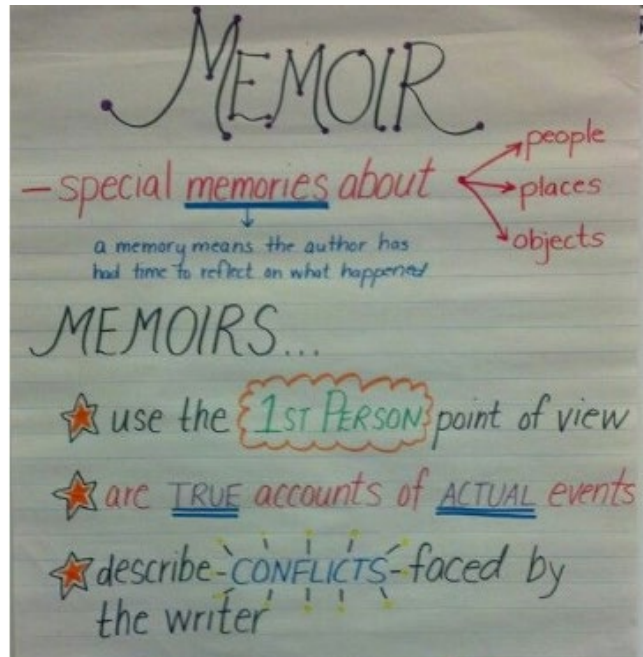 MEMOIR
- special memories about
people
places
objects
a memory means the author has
had time to reflect on what happened
MEMOIRS...
use the 1ST PERSON point of view
are TRUE accounts of ACTUAL events
describe -CONFLICTS- faced by
the writer